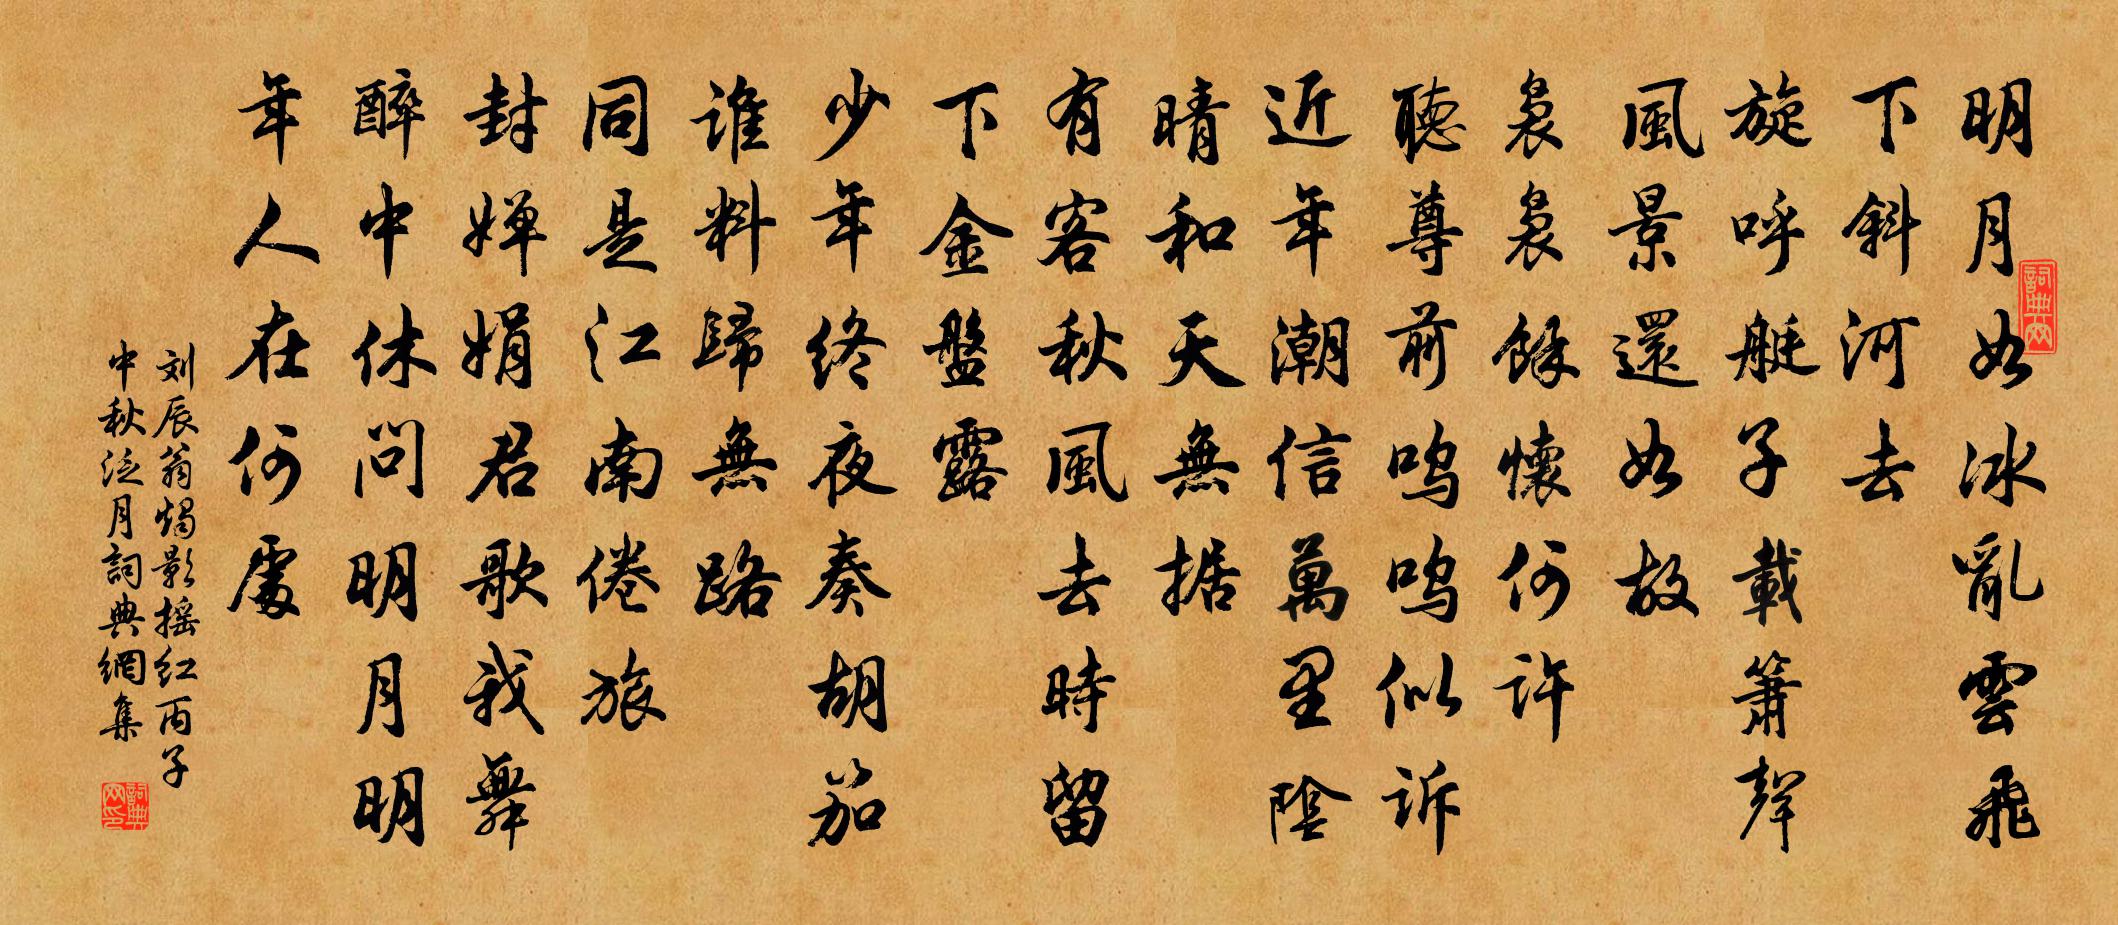 明月如冰亂雲飛
下斜河去
旋呼艇子載簫聲
風景還如故
裊裊餘懷何許
聽尊前嗚嗚似訴
近年潮信萬里陰
晴和天無據
有客秋風去時留
下金盤露
少年終夜奏胡笳
誰料歸無路
同是江南倦旅
封嬋娟君歌我舞
醉中休問明月明
年人在何處
刘辰翁燭影摇红丙子
中秋泛月詞典網集
詞典网
詞典网印